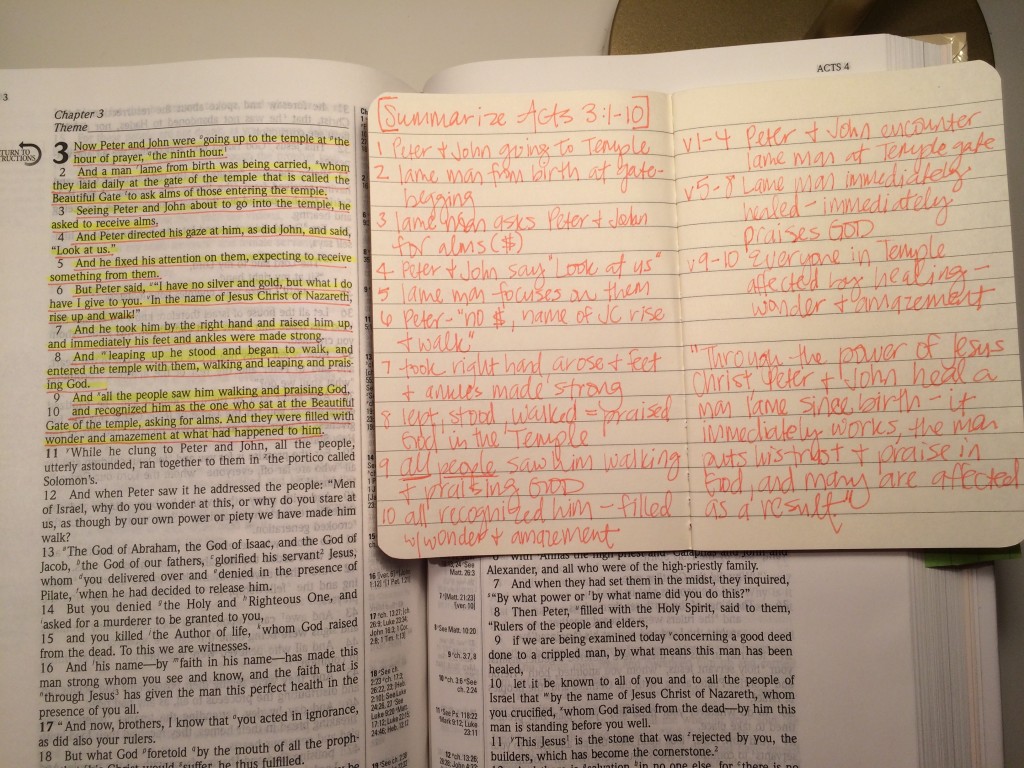 3
ACTS 4
Chapter 3
Theme
TURN TO
3 Now Peter and John were going up to the temple at the
hour of prayer, the ninth hour.
2 And a man lame from birth was being carried, whom
they laid daily at the gate of the temple that is called the
Beautiful Gate to ask alms of those entering the temple.
3 Seeing Peter and John about to go into the temple, he
asked to receive alms.
4 And Peter directed his gaze at him, as did John, and said,
"Look at us."
5 And he fixed his attention on them, expecting to receive
something from them.
6 But Peter said, "I have no silver and gold, but what I do
have I give to you. In the name of Jesus Christ of Nazareth,
rise up and walk!"
7 And he took him by the right hand and raised him up,
and immediately his feet and ankles were made strong.
8 And leaping up he stood and began to walk, and
entered the temple with them, walking and leaping and prais-
ing God.
9 And all the people saw him walking and praising God,
10 and recognized him as the one who sat at the Beautiful
Gate of the temple, asking for alms. And they were filled with
wonder and amazement at what had happened to him.
11 While he clung to Peter and John, all the people,
utterly astounded, ran together to them in the portico called
Solomon's.
12 And when Peter saw it he addressed the people: "Men
of Israel, why do you wonder at this, or why do you stare at
us, as though by our own power or piety we have made him
walk?
13 The God of Abraham, the God of Isaac, and the God of
Jacob, the God of our fathers, glorified his servant Jesus,
whom you delivered over and denied in the presence of
Pilate, when he had decided to release him.
14 But you denied the Holy and Righteous One, and
asked for a murderer to be granted to you,
15 and you killed the Author of life, whom God raised
from the dead. To this we are witnesses.
16 And his name—by faith in his name—has made this
man strong whom you see and know, and the faith that is
through Jesus has given the man this perfect health in the
presence of you all.
17 "And now, brothers, I know that you acted in ignorance,
as did also your rulers.
18 But what God foretold by the mouth of all the proph-
would suffer, he thus fulfilled.
[Summarize Acts 3:1-10]
1 Peter & John going to Temple
2 lame man from birth at gate-
begging
3 lame man asks Peter & John
for alms ($)
4 Peter & John say "Look at us"
5 lame man focuses on them
6 Peter- "no $, name of JC rise
& walk"
7 took right hand, arose & feet
& ankles made strong
8 lept, stood, walked = praised
God in the Temple
9 all people saw him walking
& praising GOD
10 all recognized him - filled
w/ wonder & amazement
v1-4 Peter & John encounter
lame man at Temple gate
v5-8 Lame man immediately
healed - immediately
praises GOD
v9-10 Everyone in Temple
affected by healing -
wonder & amazement
"Through the power of Jesus
Christ Peter & John heal a
man lame since birth - it
immediately works, the man
puts his trust & praise in
God, and many are affected
as a result"
Alexander, and all who were of the high-priestly family.
7 And when they had set them in the midst, they inquired,
"By what power or by what name did you do this?"
8 Then Peter, filled with the Holy Spirit, said to them,
"Rulers of the people and elders,
9 if we are being examined today concerning a good deed
done to a crippled man, by what means this man has been
healed,
10 let it be known to all of you and to all the people of
Israel that by the name of Jesus Christ of Nazareth, whom
you crucified, whom God raised from the dead—by him this
man is standing before you well.
11 This Jesus is the stone that was rejected by you, the
builders, which has become the cornerstone.